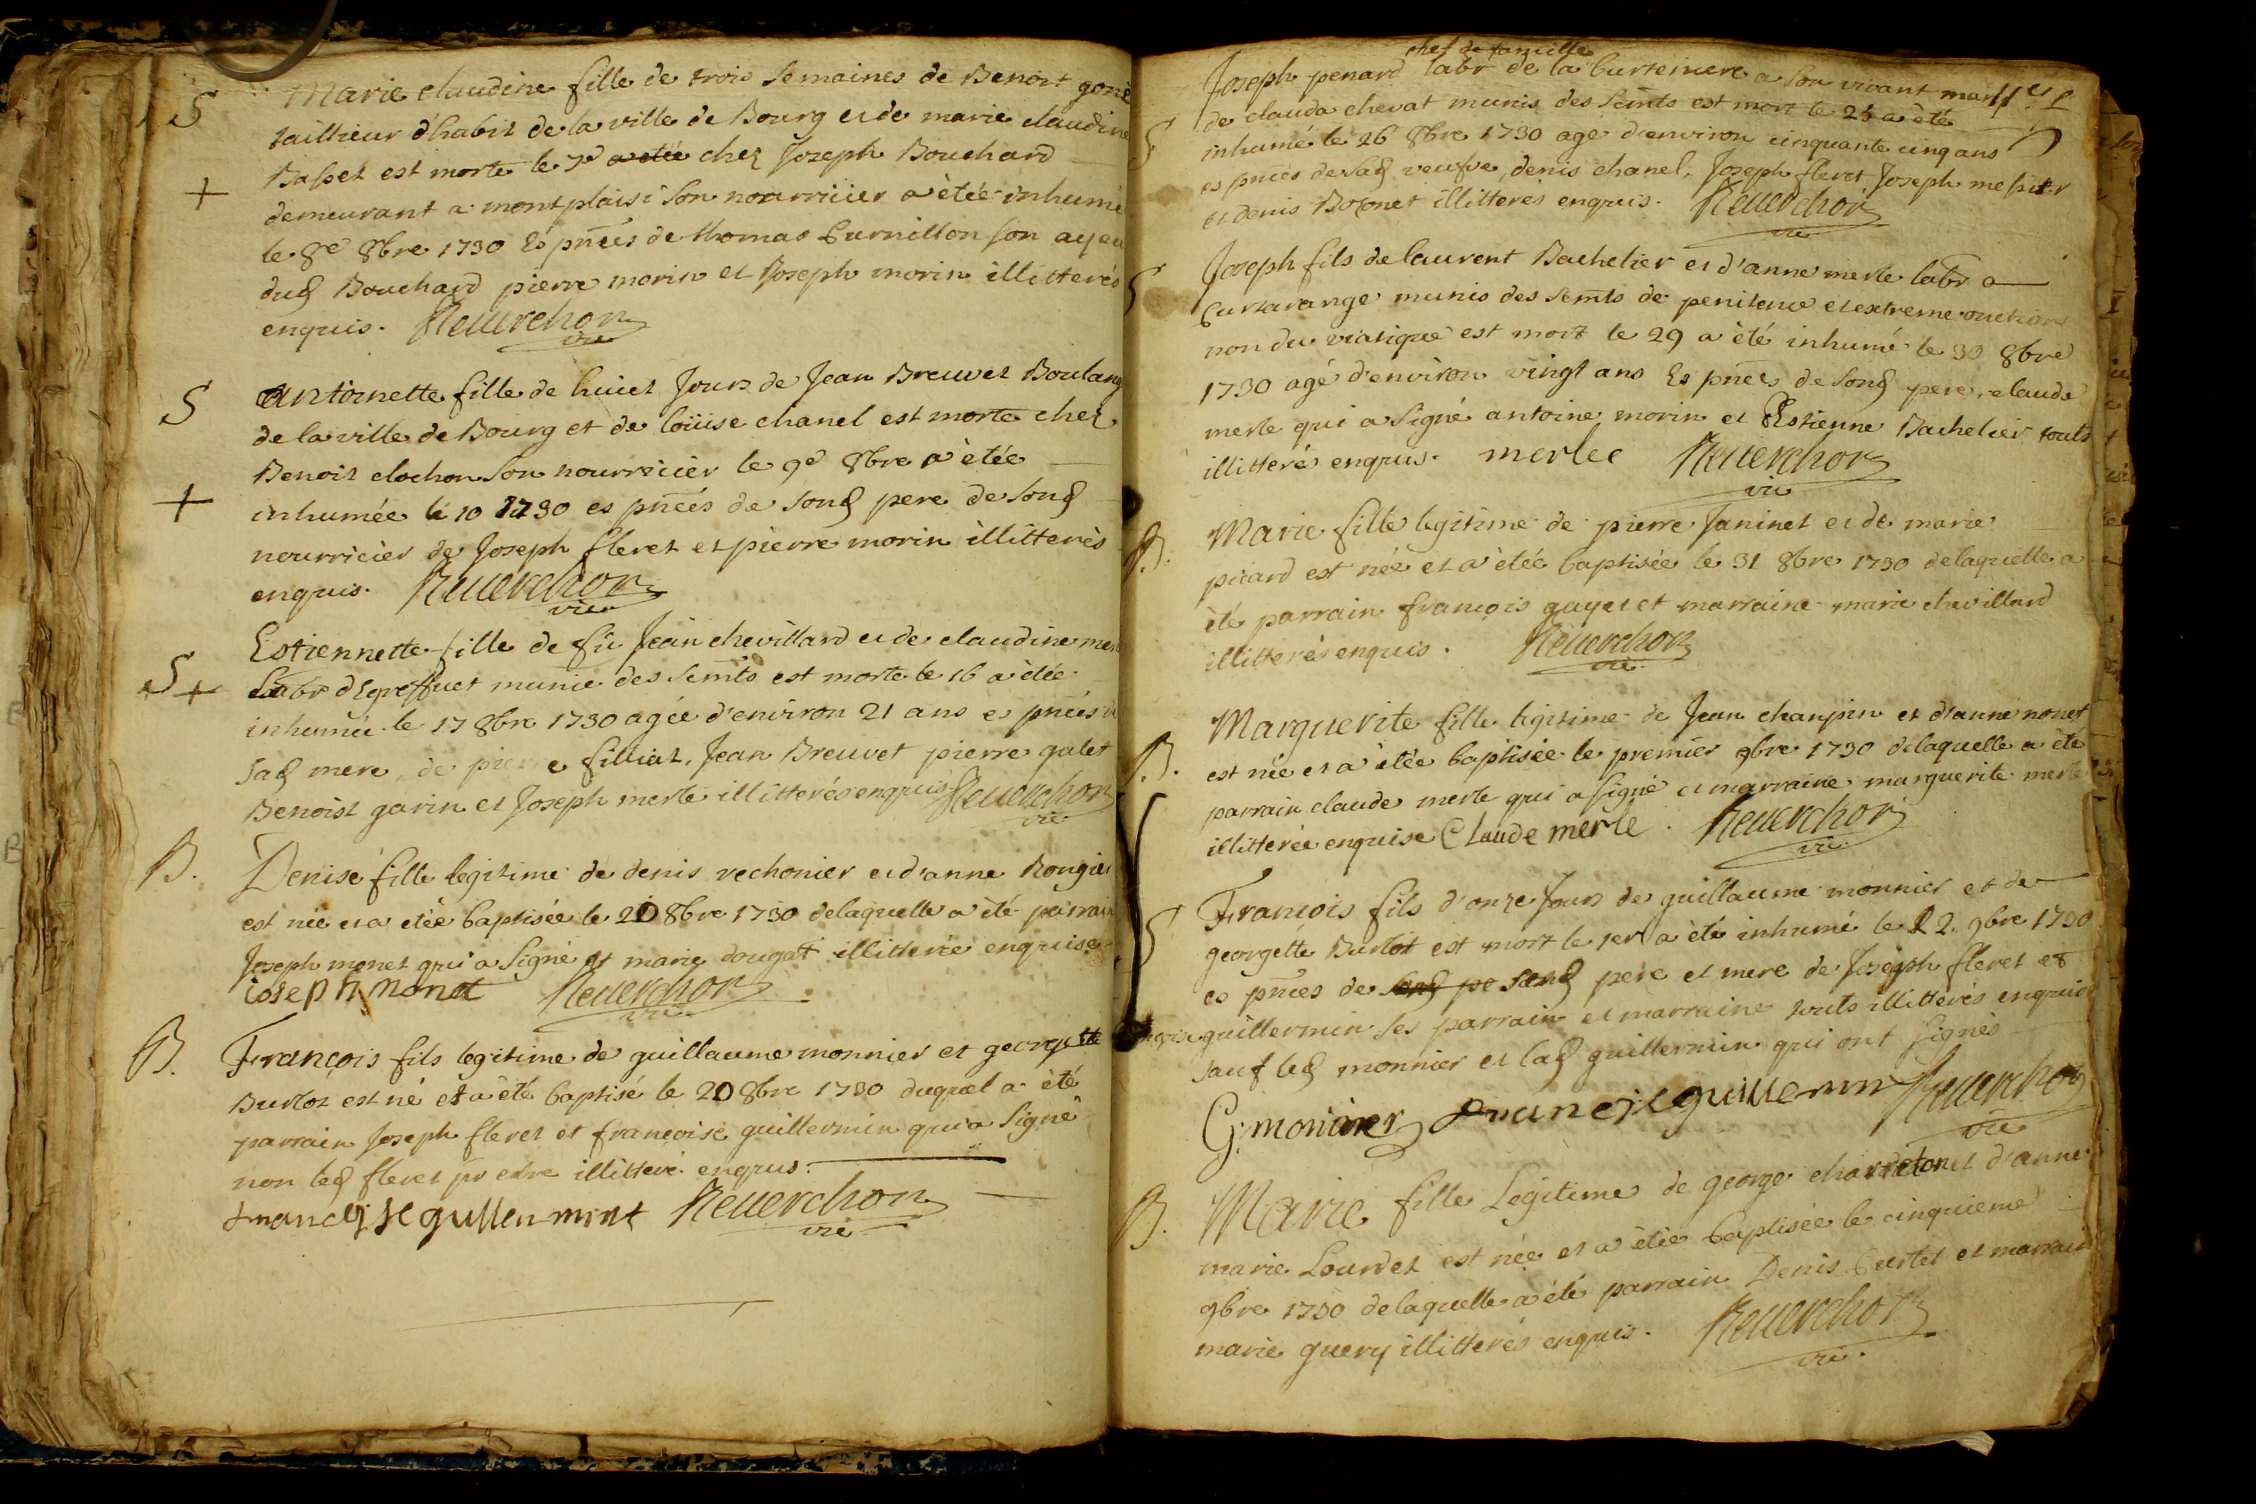 S Marie claudine fille de trois semaines de Benoit
taillieur d'habit de la ville de Bourg et de marie claudine
Basset est morte le 7e a etée chez Joseph Bouchard
+ demeurant a montplaisi son nourricier a étée inhumé
le 8e 8bre 1730 Es pnces de thomas Curnillon son ayeu
dud Bouchard pierre morin et Joseph morin illitterés
enquis. Reuerchon
vic
S antoinette fille de huict Jours de Jean Breuvet Boulang
de la ville de Bourg et de loüise chanel est morte chez
Benoit clochon son nourricier le 9e 8bre a étée
+ inhumée le 10 1730 es pnces de sond pere de sond
nourricier de Joseph fleret et pierre morin illitterés
enquis. Reuerchon
vic
Estiennette fille de fu Jean chevillard et de claudine
S + Labr munie des semts est morte le 16 a étée
inhumée le 17 8bre 1730 agée d'environ 21 ans es pnces
sad mere, de pierre filliat, Jean Breuvet pierre galet
Benoist garin et Joseph merle illitterés enquis Reuerchon
vic
B. Denise fille legitime de denis rechonier et d'anne Rongier
est née et a étée baptisée le 20 8bre 1730 delaquelle a été parrain
Joseph monet qui a signé et marie dougat illitterée enquise
ioseph monet Reuerchon
vic
B. François fils legitime de guillaume monnier et georgette
Burlot est né et a été baptisé le 20 8bre 1730 duquel a été
parrain Joseph fleret et françoise guillermin qui a signé
non led fleret pr etre illitteré enquis.
Reuerchon
vic
chef de famille
Joseph penard labr de la a son vivant mary
de clauda chevat munis des semts est mort le 25 a été
S inhumé le 26 8bre 1730 age d'environ cinquante cinq ans
es pnces de sad veufve, denis chanel, Joseph fleret Joseph
et denis illitterés enquis. Reuerchon
vic
S Joseph fils de laurent Bachelier et d'anne merle labr a
Curtarange munis des semts de penitence et extreme onction
non du viatique est mort le 29 a été inhumé le 30 8bre
1730 agé d'environ vingt ans Es pnces de sond pere, claude
merle qui a signé antoine morin et Estienne Bachelier touts
illitterés enquis. merlee Reuerchon
vic
B. Marie fille legitime de pierre Janinet et de marie
picard est née et a étée baptisée le 31 8bre 1730 delaquelle a
été parrain françois guyet et marraine marie chevillard
illitterés enquis. Reuerchon
vic
Marguerite fille legitime de Jean chanpin et d'anne nonet
B. est née et a étée baptisée le premier 9bre 1730 delaquelle a été
parrain claude merle qui a signé et marraine marguerite merle
illitterée enquise Claude merle. Reuerchon
vic
S François fils d'onze Jours de guillaume monnier et de
georgette Burlot est mort le 1er a été inhumé le 2. 9bre 1730
es pnces de sond pe sesd pere et mere de Joseph fleret et
guillermin ses parrain et marraine touts illitterés enquis
sauf led monnier et lad guillermin qui ont signés
G. monnier francoise guillermin Reuerchon
vic
B. Marie fille Legitime de george charreton et d'anne
marie Lourdet est née et a étée baptisée le cinquieme
9bre 1730 delaquelle a été parrain Denis Curtet et marraine
marie guery illitterés enquis. Reuerchon
vic.